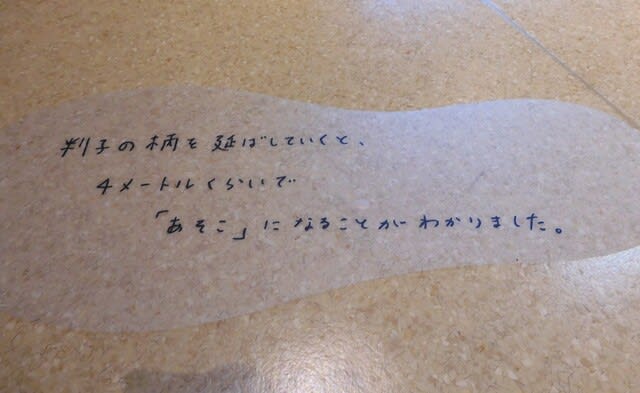 判子の柄を延ばしていくと、
4メートルくらいで
「あそこ」になることがわかりました。